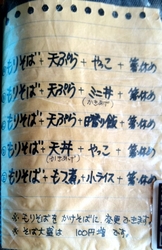 もりそば + 天ぷら + やっこ + 箸休め
もりそば + 天ぷら + ミニ丼 + 箸休め
(かきあげ)
もりそば + 天ぷら + 日替り飯 + 箸休め
もりそば + 天丼 + やっこ + 箸休め
(かきあげ)
もりそば + もつ煮 + 小ライス + 箸休め
※もりそばをかけそばに変更できます。
※そば大盛は 100円増です。